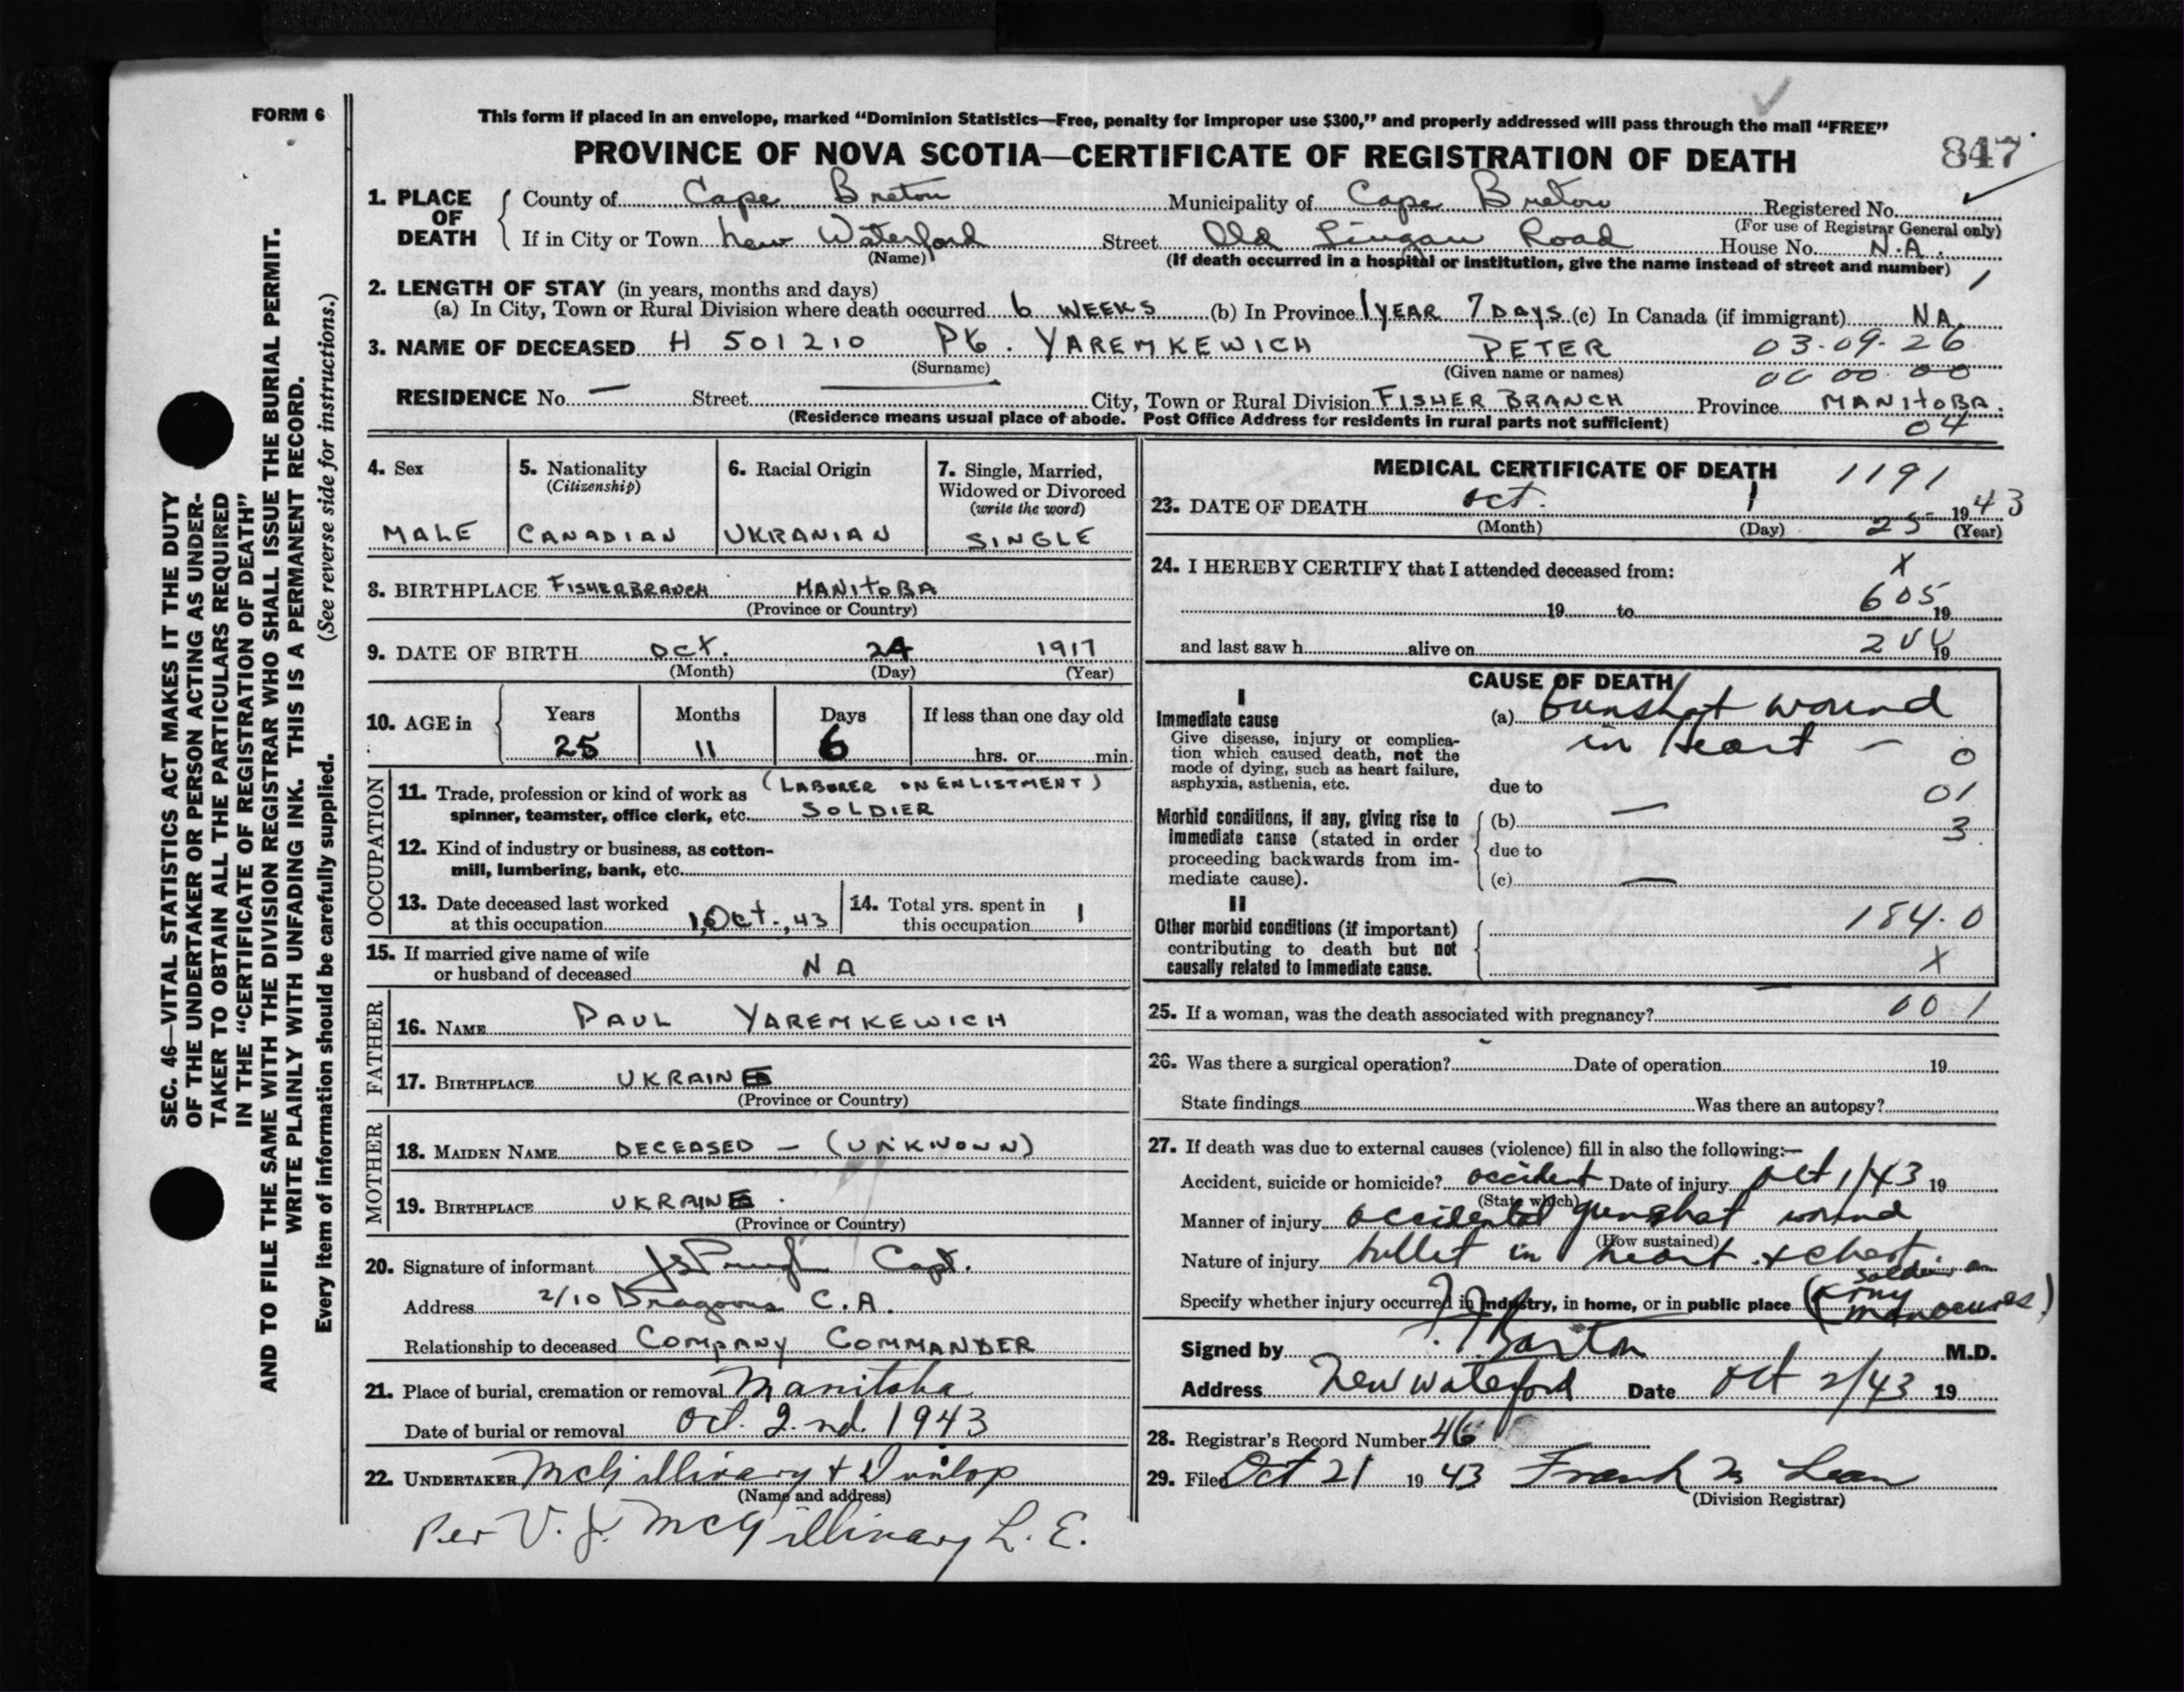 FORM 6
This form if placed in an envelope, marked “Dominion Statistics—Free, penalty for improper use $300,” and properly addressed will pass through the mail “FREE”
PROVINCE OF NOVA SCOTIA—CERTIFICATE OF REGISTRATION OF DEATH
847
1. PLACE OF DEATH
County of Cape Breton Municipality of Cape Breton Registered No.
(For use of Registrar General only)
If in City or Town New Waterford Street Old Lingan Road House No. N.A.
(Name) (If death occurred in a hospital or institution, give the name instead of street and number) 1
2. LENGTH OF STAY (in years, months and days)
(a) In City, Town or Rural Division where death occurred 6 WEEKS (b) In Province 1 YEAR 7 DAYS (c) In Canada (if immigrant) NA.
3. NAME OF DECEASED H 501210 Pte. YAREMKEWICH PETER 03-09-26
(Surname) (Given name or names) 00 00 00
RESIDENCE No. — Street City, Town or Rural Division FISHER BRANCH Province MANITOBA.
(Residence means usual place of abode. Post Office Address for residents in rural parts not sufficient) 04
4. Sex
MALE
5. Nationality
(Citizenship)
CANADIAN
6. Racial Origin
UKRANIAN
7. Single, Married,
Widowed or Divorced
(write the word)
SINGLE
8. BIRTHPLACE FISHERBRANCH MANITOBA
(Province or Country)
9. DATE OF BIRTH OCT. 24 1917
(Month) (Day) (Year)
10. AGE in
Years Months Days If less than one day old
25 11 6 hrs. or min.
OCCUPATION
11. Trade, profession or kind of work as (LABORER ON ENLISTMENT)
spinner, teamster, office clerk, etc. SOLDIER
12. Kind of industry or business, as cotton-
mill, lumbering, bank, etc.
13. Date deceased last worked
at this occupation 1, Oct., 43
14. Total yrs. spent in
this occupation 1
15. If married give name of wife
or husband of deceased NA
FATHER
16. NAME PAUL YAREMKEWICH
17. BIRTHPLACE UKRAINE
(Province or Country)
MOTHER
18. MAIDEN NAME DECEASED — (UNKNOWN)
19. BIRTHPLACE UKRAINE.
(Province or Country)
20. Signature of informant Capt.
Address 2/10 Dragoons C.A.
Relationship to deceased COMPANY COMMANDER
21. Place of burial, cremation or removal Manitoba
Date of burial or removal Oct. 2nd. 1943
22. UNDERTAKER McGillivary & Dunlop
(Name and address)
Per V. J. McGillivary L. E.
MEDICAL CERTIFICATE OF DEATH 1191
23. DATE OF DEATH Oct. 1 1943
(Month) (Day) 25 (Year)
24. I HEREBY CERTIFY that I attended deceased from: X
19 to 605 19
and last saw h alive on 19
CAUSE OF DEATH
I
Immediate cause
Give disease, injury or complica-
tion which caused death, not the
mode of dying, such as heart failure,
asphyxia, asthenia, etc.
(a) Gunshot wound
in Heart — 0
due to 01
Morbid conditions, if any, giving rise to
immediate cause (stated in order
proceeding backwards from im-
mediate cause).
(b) — 3
due to
(c) —
II
Other morbid conditions (if important)
contributing to death but not
causally related to immediate cause.
184.0
X
25. If a woman, was the death associated with pregnancy? 00 1
26. Was there a surgical operation? Date of operation 19
State findings Was there an autopsy?
27. If death was due to external causes (violence) fill in also the following:—
Accident, suicide or homicide? accident Date of injury Oct 1/43 19
(State which)
Manner of injury accidental gunshot wound
(How sustained)
Nature of injury bullet in heart & chest.
Specify whether injury occurred in industry, in home, or in public place (soldier on army manoeuvres)
Signed by Barton M.D.
Address New Waterford Date Oct 2/43 19
28. Registrar's Record Number 46
29. Filed Oct 21 1943 Frank
(Division Registrar)
SEC. 46—VITAL STATISTICS ACT MAKES IT THE DUTY
OF THE UNDERTAKER OR PERSON ACTING AS UNDER-
TAKER TO OBTAIN ALL THE PARTICULARS REQUIRED
IN THE “CERTIFICATE OF REGISTRATION OF DEATH”
AND TO FILE THE SAME WITH THE DIVISION REGISTRAR WHO SHALL ISSUE THE BURIAL PERMIT.
WRITE PLAINLY WITH UNFADING INK. THIS IS A PERMANENT RECORD.
Every item of information should be carefully supplied. (See reverse side for instructions.)